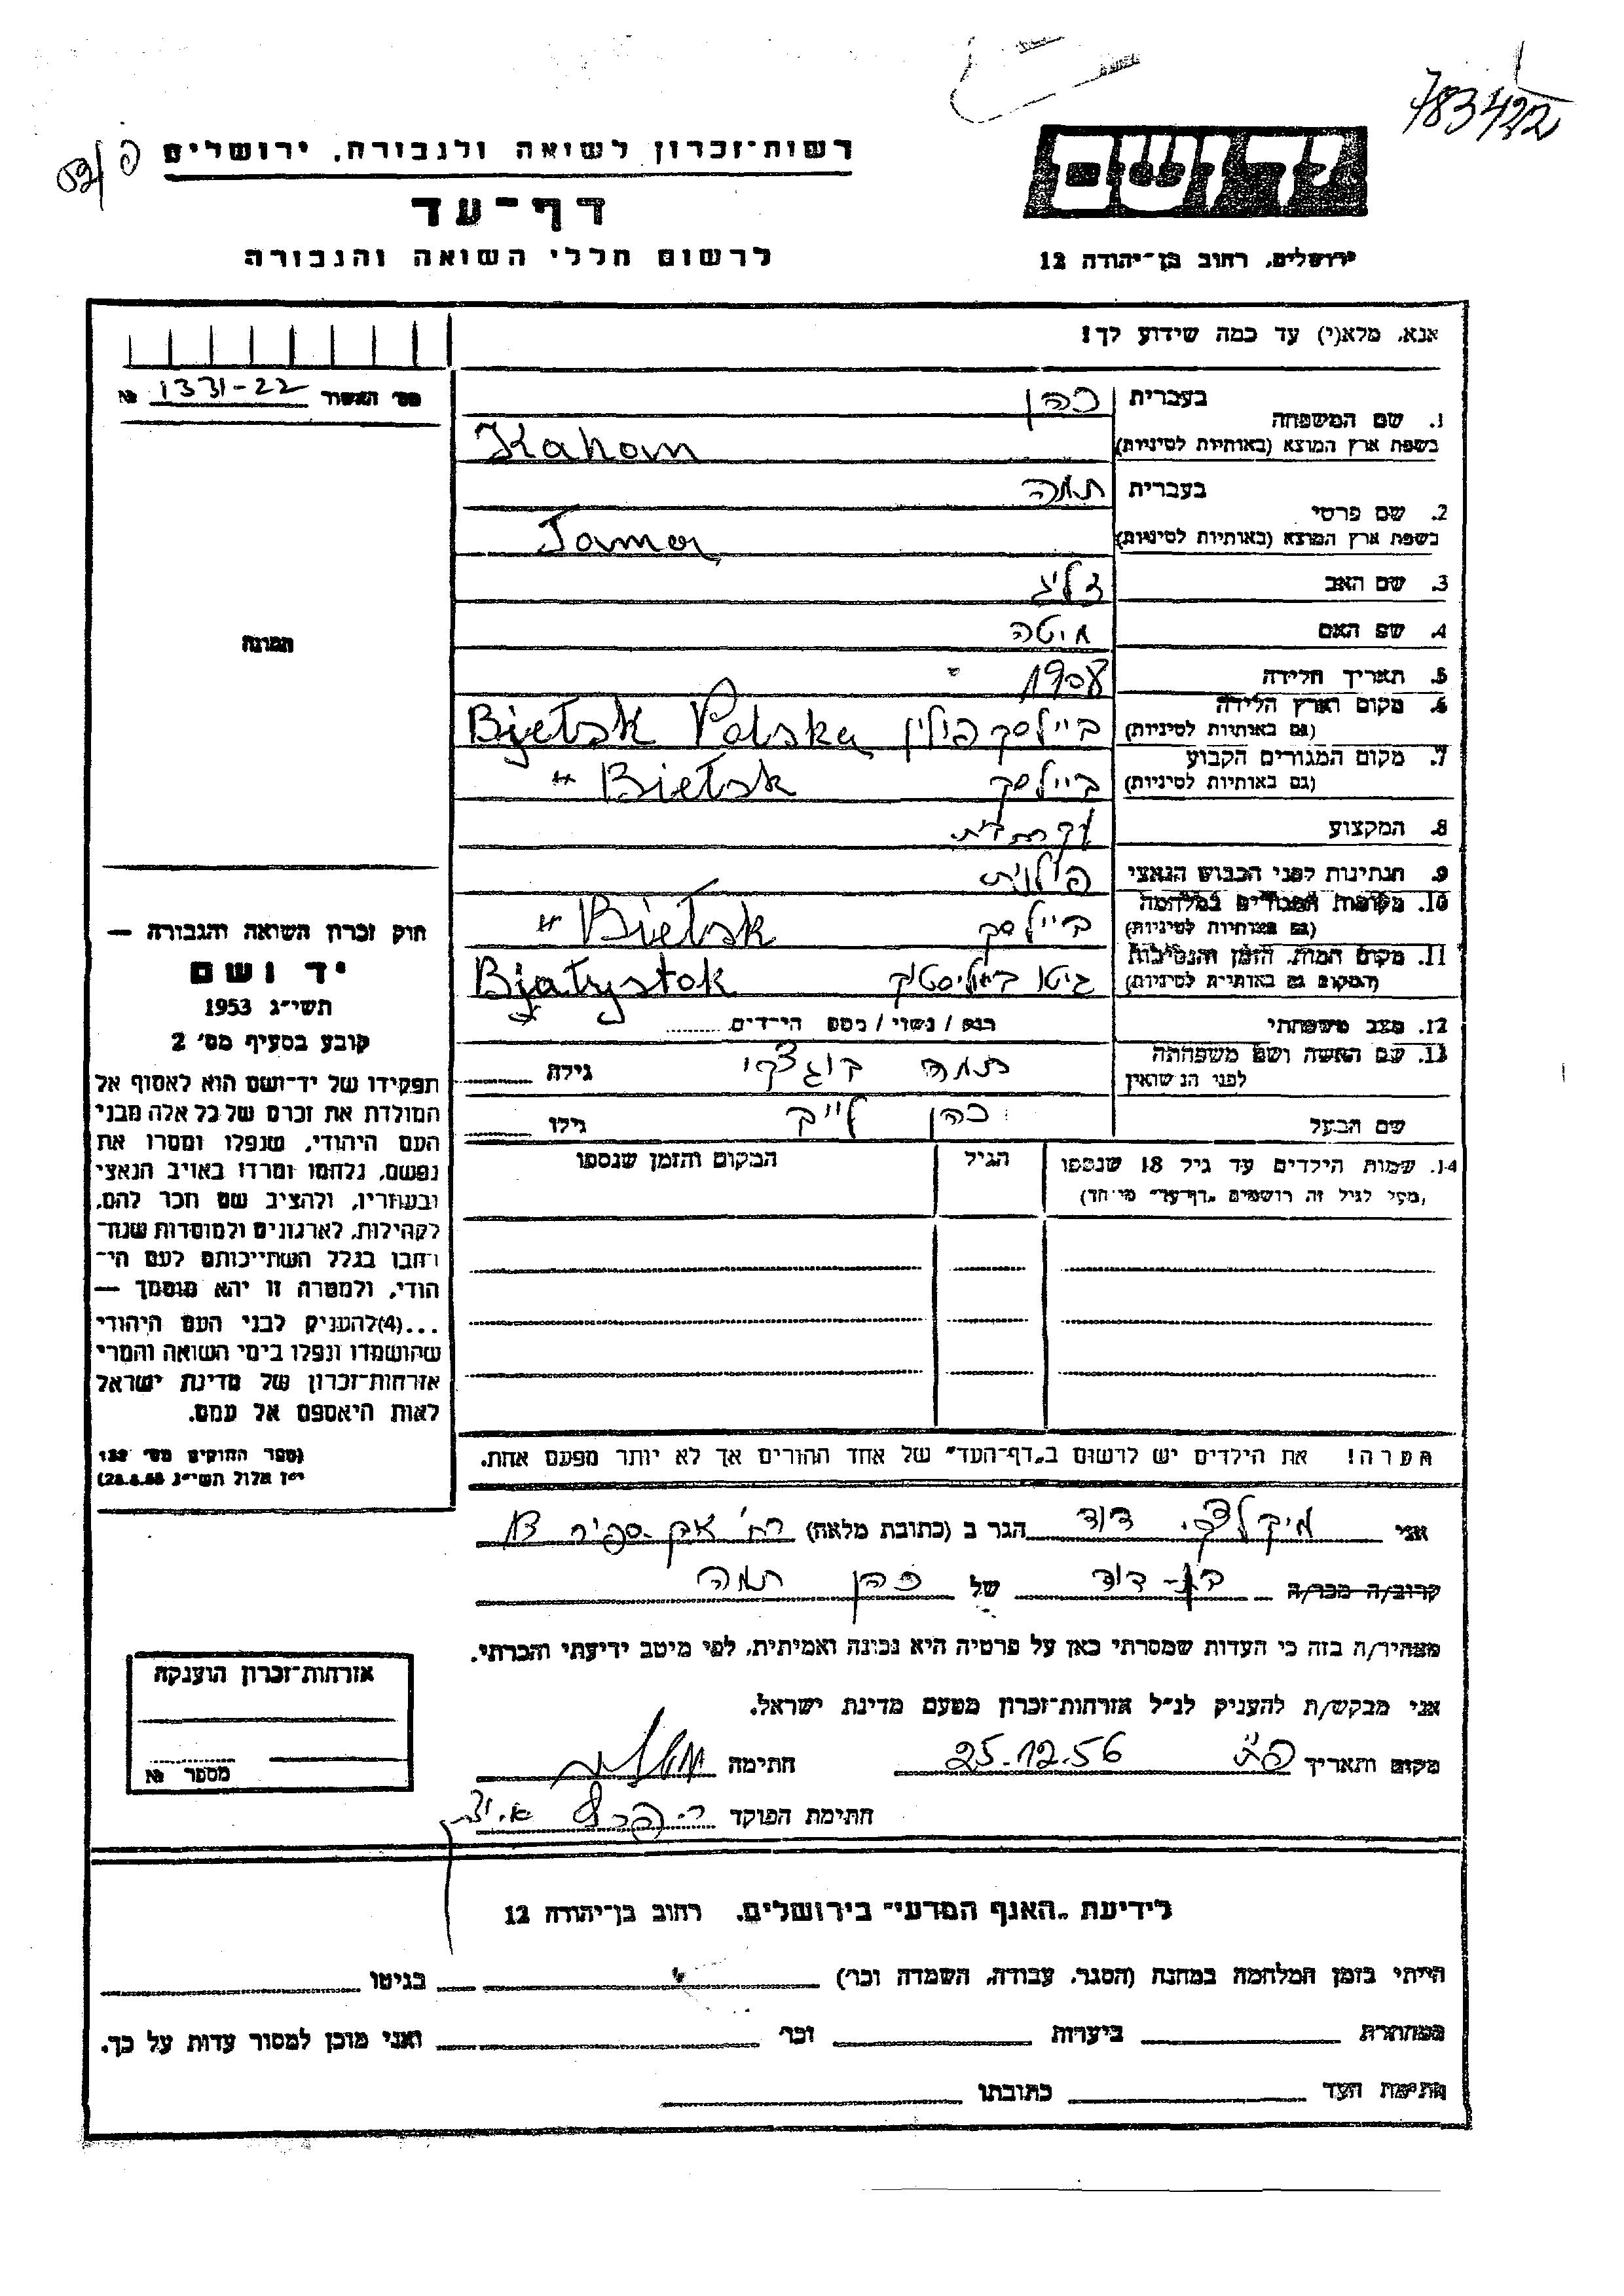 783422
רשות־זכרון לשואה ולגבורה, ירושלים
דף־עד
לרשום חללי השואה והגבורה
ירושלים, רחוב בן־יהודה 12
אנא, מלא(י) עד כמה שידוע לך!
מס׳ האשור 1331-22 №
תמונה
1. שם המשפחה בעברית כהן
בשפת ארץ המוצא (באותיות לטיניות) Kahom
2. שם פרטי בעברית תמרה
בשפת ארץ המוצא (באותיות לטיניות) Tamar
3. שם האב זליג
4. שם האם מיטה
5. תאריך הלידה 1908
6. מקום וארץ הלידה (גם באותיות לטיניות) ביילסק פולין Bjełsk Polska
7. מקום המגורים הקבוע (גם באותיות לטיניות) ביילסק Biełsk "
8. המקצוע
9. הנתינות לפני הכבוש הנאצי פולנית
10. מקומות המגורים במלחמה (גם באותיות לטיניות) ביילסק Biełsk "
11. מקום המות, הזמן והנסיבות (המקום גם באותיות לטיניות) גיטו ביאליסטוק Bjałystok
12. מצב משפחתי רווק / נשוי / מספר הילדים
13. שם האשה ושם משפחתה לפני הנשואין תמרה בוגצקי גילה
שם הבעל כהן לייב גילו
14. שמות הילדים עד גיל 18 שנספו הגיל המקום והזמן שנספו
(מעל לגיל זה רושמים „דף־עד" מיוחד)
הערה! את הילדים יש לרשום ב„דף־העד" של אחד ההורים אך לא יותר מפעם אחת.
חוק זכרון השואה והגבורה —
יד ושם
תשי״ג 1953
קובע בסעיף מס׳ 2
תפקידו של יד־ושם הוא לאסוף אל
המולדת את זכרם של כל אלה מבני
העם היהודי, שנפלו ומסרו את
נפשם, נלחמו ומרדו באויב הנאצי
ובעוזריו, ולהציב שם וזכר להם,
לקהילות, לארגונים ולמוסדות שנח־
רבו בגלל השתייכותם לעם הי־
הודי, ולמטרה זו יהא מוסמך —
...(4)להעניק לבני העם היהודי
שהושמדו ונפלו בימי השואה והמרי
אזרחות־זכרון של מדינת ישראל
לאות היאספם אל עמם.
(ספר החוקים מס׳ 132
י״ז אלול תשי״ג 28.8.53)
אני מיקולצקי דוד הגר ב (כתובת מלאה) רח׳ אבן ספיר
קרוב/ה מכר/ה בן-דוד של כהן תמרה
מצהיר/ה בזה כי העדות שמסרתי כאן על פרטיה היא נכונה ואמיתית, לפי מיטב ידיעתי והכרתי.
אני מבקש/ת להעניק לנ״ל אזרחות־זכרון מטעם מדינת ישראל.
מקום ותאריך פ״ת 25.12.56 חתימה
חתימת הפוקד
אזרחות־זכרון הוענקה
מספר №
לידיעת „האגף המדעי" בירושלים, רחוב בן־יהודה 12
הייתי בזמן המלחמה במחנה (הסגר, עבודה, השמדה וכו׳) בגיטו
במחתרת ביערות וכו׳ ואני מוכן למסור עדות על כך.
חתימת העד כתובתו